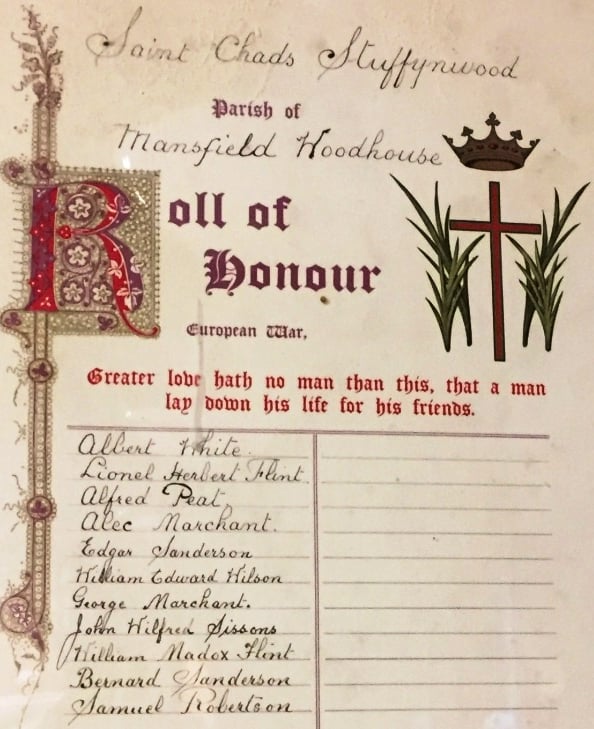 Saint Chads Stuffynwood
Parish of
Mansfield Woodhouse
Roll of
Honour
European War,
Greater love hath no man than this, that a man
lay down his life for his friends.
Albert White.
Lionel Herbert Flint.
Alfred Peat.
Alec Marchant.
Edgar Sanderson
William Edward Wilson
George Marchant.
John Wilfred Sissons
William Madox Flint
Bernard Sanderson
Samuel Robertson